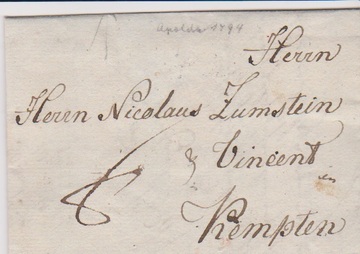 Apolda 1794
Herrn
Herrn Nicolaus Zumstein
& Vincent
in
Kempten
8